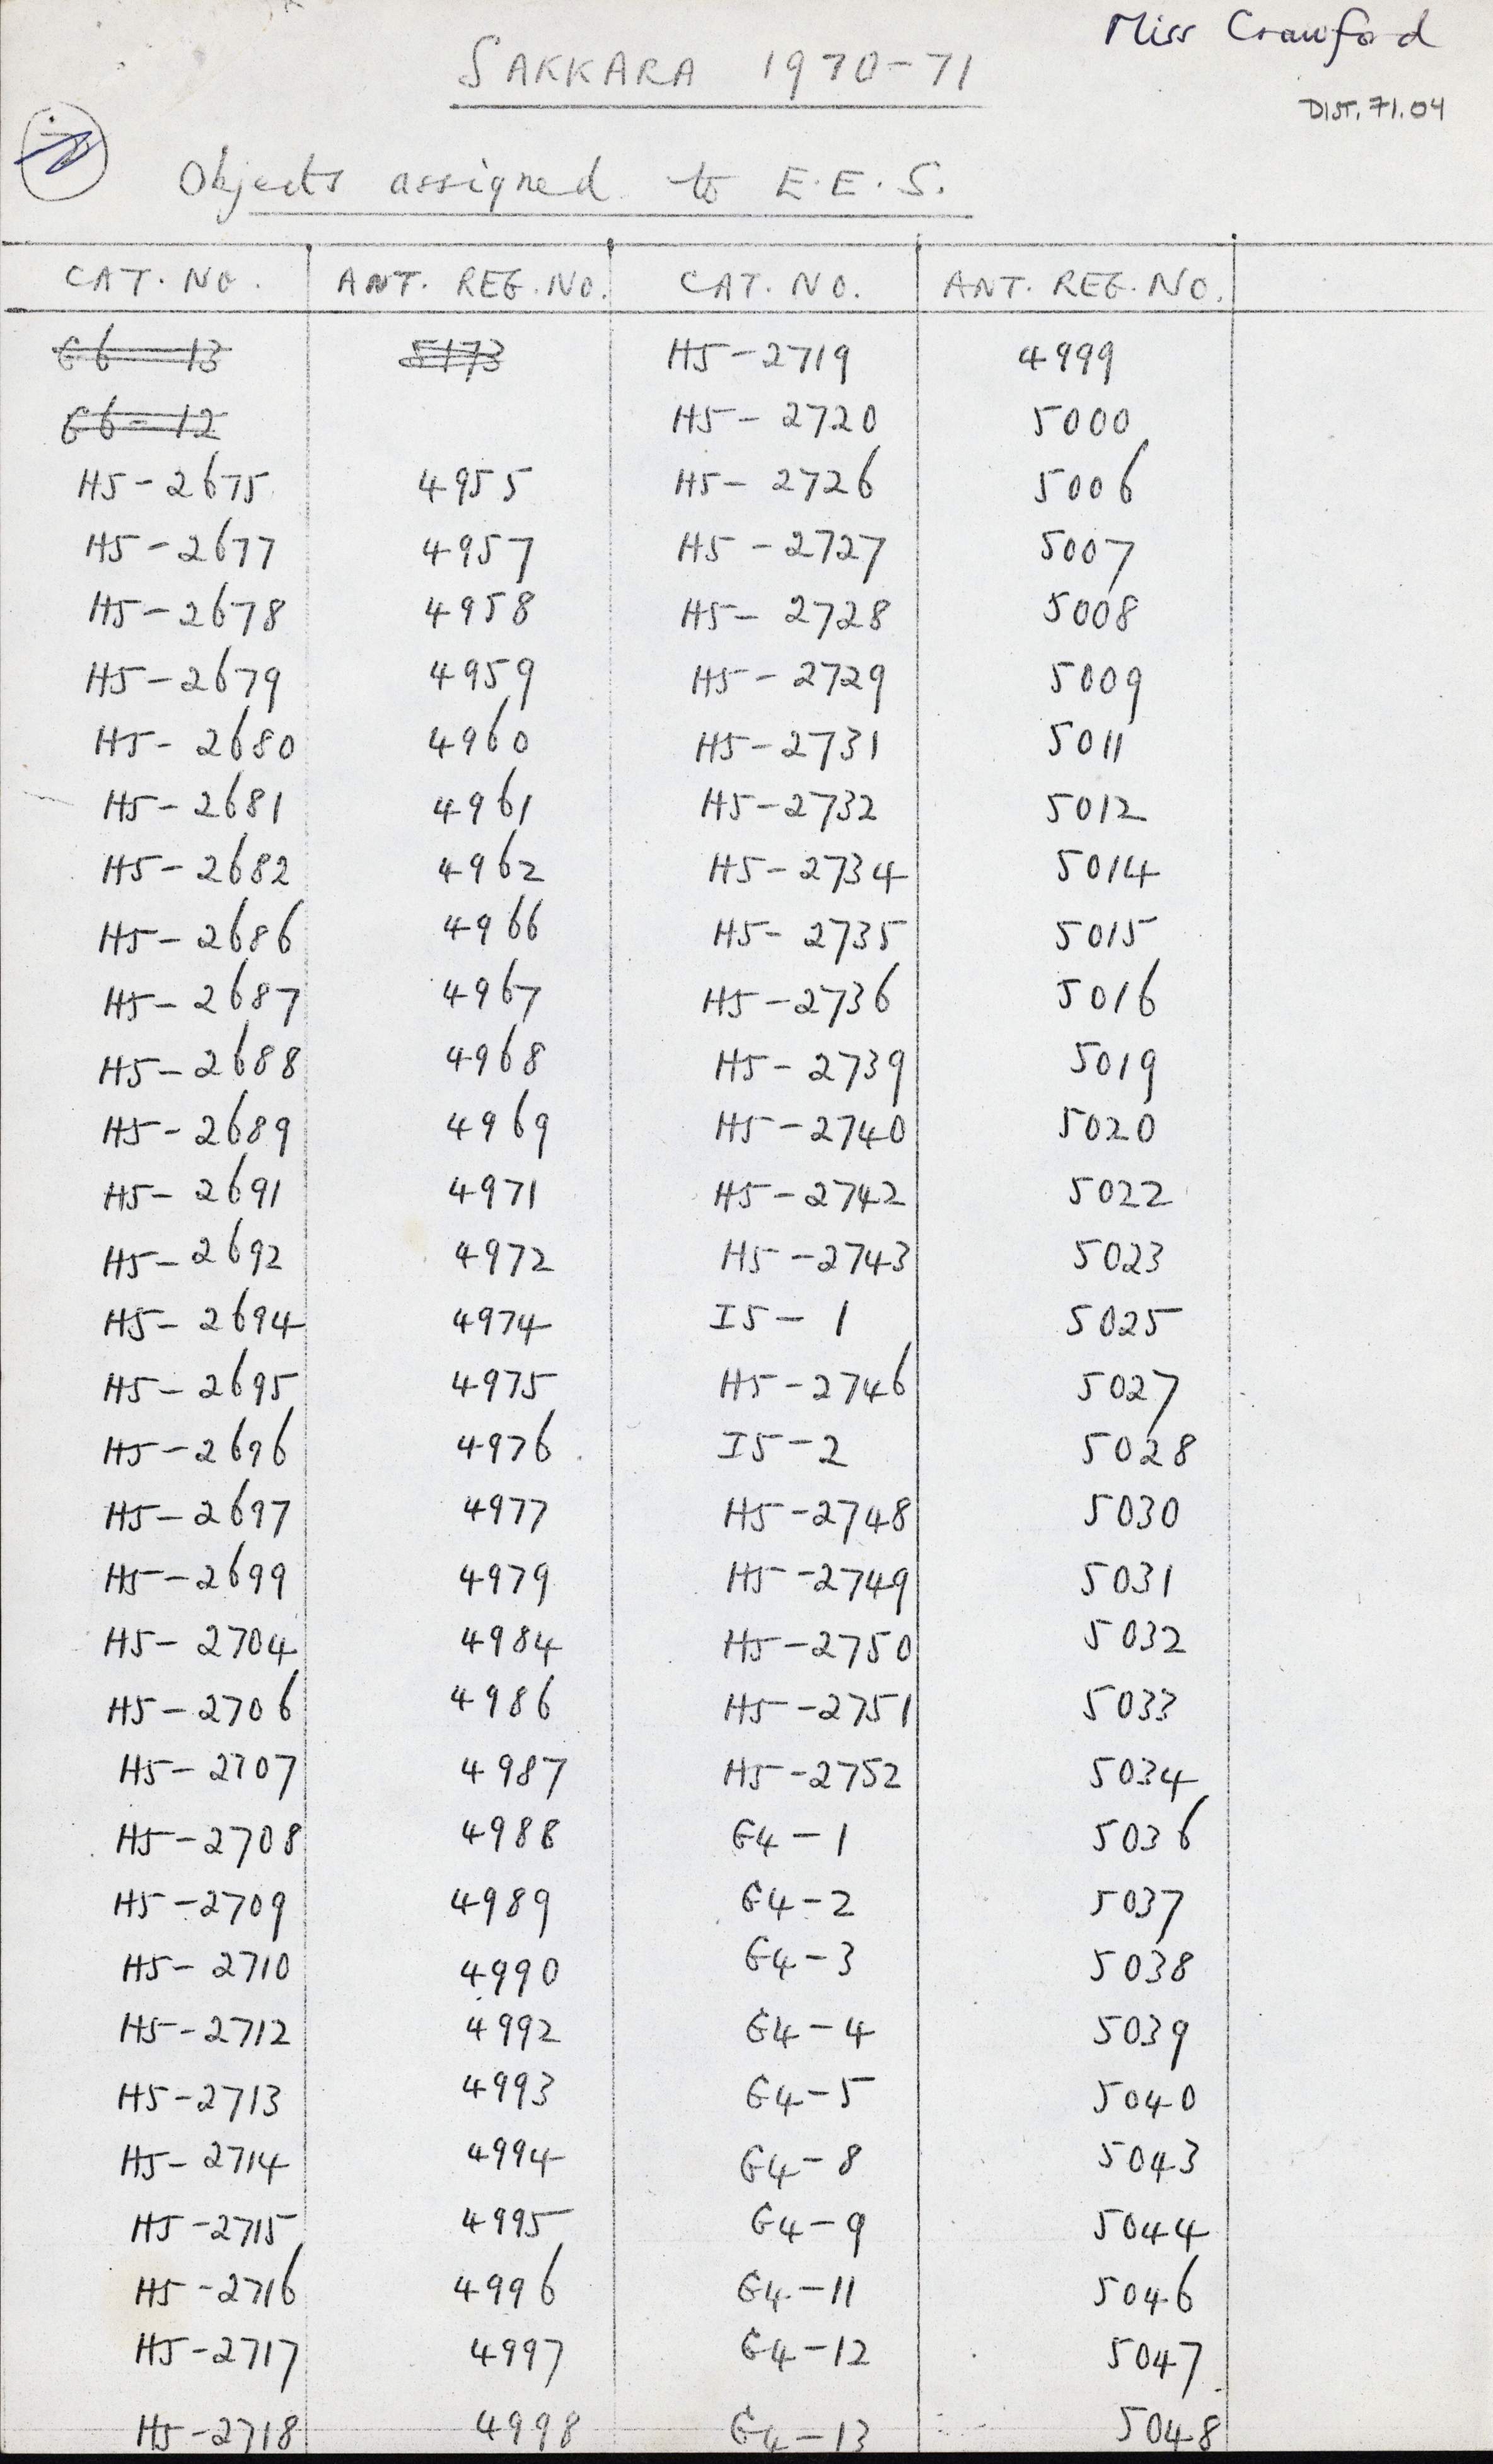 Miss Crawford
SAKKARA 1970-71
DIST. 71.04
Objects assigned to E.E.S.
CAT. NO. ANT. REG. NO. CAT. NO. ANT. REG. NO.
G6 - 13 5173 H5-2719 4999
G6-12 H5-2720 5000
H5-2675 4955 H5-2726 5006
H5-2677 4957 H5-2727 5007
H5-2678 4958 H5-2728 5008
H5-2679 4959 H5-2729 5009
H5-2680 4960 H5-2731 5011
H5-2681 4961 H5-2732 5012
H5-2682 4962 H5-2734 5014
H5-2686 4966 H5-2735 5015
H5-2687 4967 H5-2736 5016
H5-2688 4968 H5-2739 5019
H5-2689 4969 H5-2740 5020
H5-2691 4971 H5-2742 5022
H5-2692 4972 H5-2743 5023
H5-2694 4974 I5-1 5025
H5-2695 4975 H5-2746 5027
H5-2696 4976 I5-2 5028
H5-2697 4977 H5-2748 5030
H5-2699 4979 H5-2749 5031
H5-2704 4984 H5-2750 5032
H5-2706 4986 H5-2751 5033
H5-2707 4987 H5-2752 5034
H5-2708 4988 G4-1 5036
H5-2709 4989 G4-2 5037
H5-2710 4990 G4-3 5038
H5-2712 4992 G4-4 5039
H5-2713 4993 G4-5 5040
H5-2714 4994 G4-8 5043
H5-2715 4995 G4-9 5044
H5-2716 4996 G4-11 5046
H5-2717 4997 G4-12 5047
H5-2718 4998 G4-13 5048